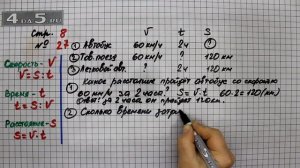 4 ДЗ 5.RU
Стр. 8
№ 27
V t S
① Автобус 60 км/ч 2ч ?
② Тов. поезд 60 км/ч ? 120 км
③ Легковой авт. ? 2ч 120 км
Скорость - V
V = S : t
Время - t
t = S : V
Расстояние - S
S = V · t
① Какое расстояние пройдёт автобус со скоростью
60 км/ч за 2 часа? S = V · t 60 · 2 = 120 (км)
Ответ: за 2 часа он пройдёт 120 км.
② Сколько времени затра